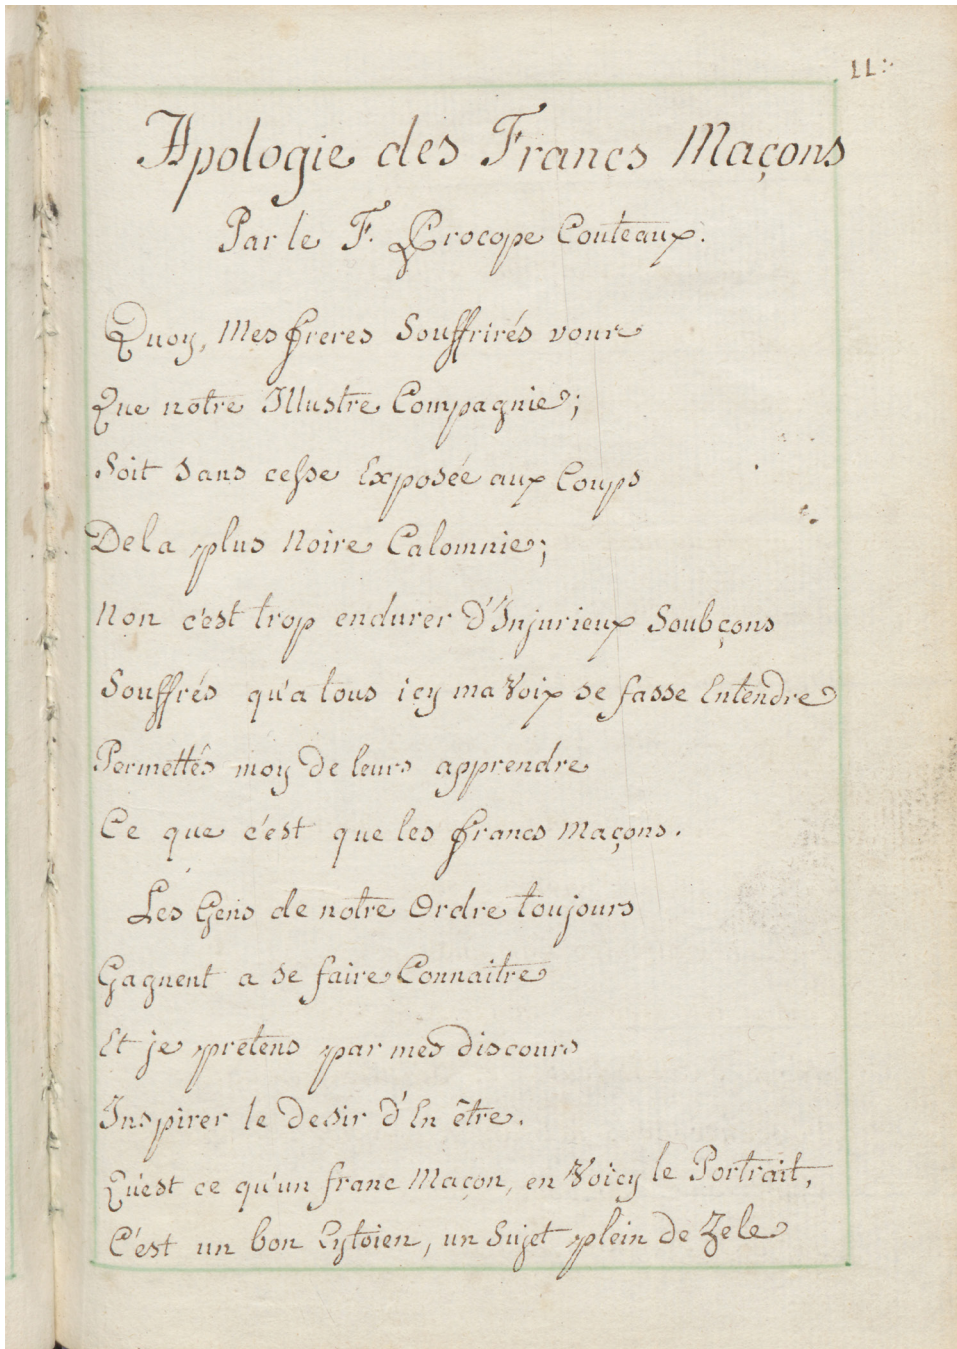 11.
Apologie des Francs Maçons
Par le F. Procope Couteaux.
Quoy, Mes freres Souffrirés vous
Que notre Illustre Compagnie;
Soit Sans cesse Exposée aux Coups
De la plus Noire Calomnie;
Non c'est trop endurer d'Injurieux Soubçons
Souffrés qu'a tous icy ma Voix se fasse Entendre
Permettés moy de leurs apprendre
Ce que c'est que les francs Maçons.
Les Gens de notre Ordre toujours
Gagnent a se faire Connaitre
Et je pretens par mes discours
Inspirer le Desir d'En être.
Qu'est ce qu'un franc Maçon, en Voicy le Portrait,
C'est un bon Cytoien, un Sujet plein de Zele